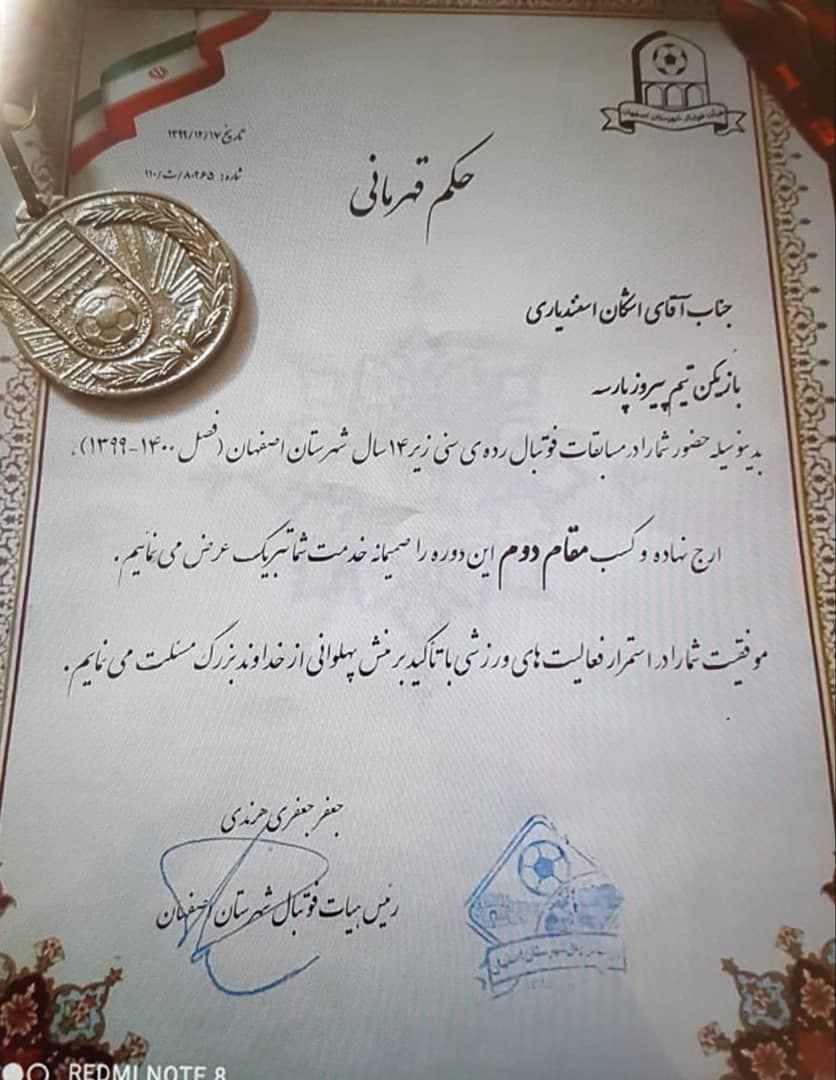 هیئت فوتبال شهرستان اصفهان
تاریخ: ۱۳۹۹/۱۲/۱۷
شماره: ۸۰۲۶۵/ث/۱۱۰
حکم قهرمانی
جناب آقای اشکان اسفندیاری
بازیکن تیم پیروز پارسه
بدینوسیله حضور شما را در مسابقات فوتبال رده ی سنی زیر ۱۴ سال شهرستان اصفهان (فصل ۱۴۰۰-۱۳۹۹)،
ارج نهاده و کسب مقام دوم این دوره را صمیمانه خدمت شما تبریک عرض می نمائیم.
موفقیت شما را در استمرار فعالیت های ورزشی با تأکید بر منش پهلوانی از خداوند بزرگ مسئلت می نمایم.
جعفر جعفری هرندی
رئیس هیات فوتبال شهرستان اصفهان
REDMI NOTE 8